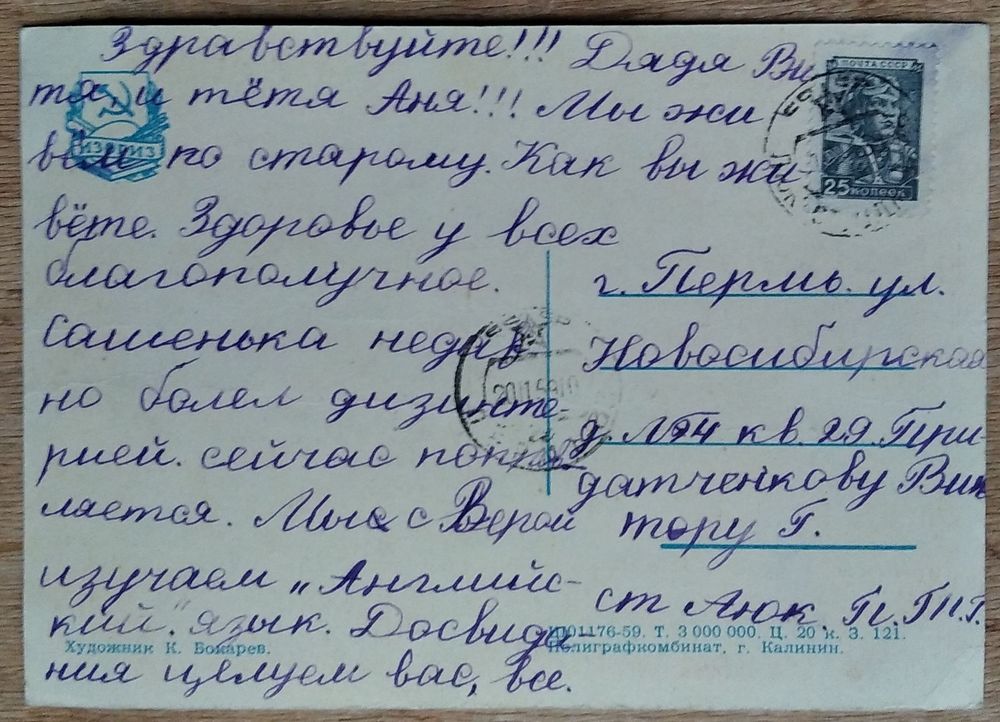 Здравствуйте!!! Дядя Ви
тя и тётя Аня!!! Мы жи
вём по старому. Как вы жи
вёте. Здоровье у всех
благополучное.
Сашенька недав
но болел дизинте-
рией. сейчас поправ
ляется. Мы с Верой
изучаем „Английс-
кий" язык. Досвида-
ния целуем вас, все.
ИЗОГИЗ
ПОЧТА СССР
25 КОПЕЕК
г. Пермь. ул.
Новосибирская
д. №  кв. 29. При-
датченкову Вик
тору Г.
ст Аюк П. Г.
Художник К. Бокарев.
01176-59. Т. 3 000 000. Ц. 20 к. З. 121.
Полиграфкомбинат, г. Калинин.